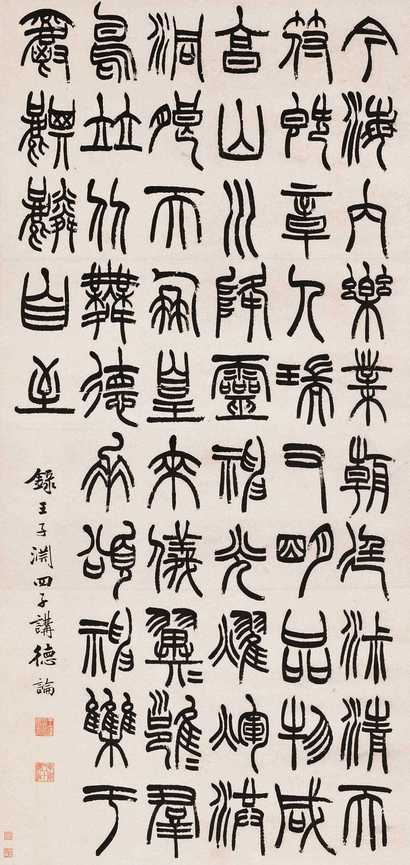 今海內樂業朝廷淑清天
符既章人瑞又明品物咸
亨山川降靈神光耀煇洪
洞朗天鳳皇來儀翼〻雝〻群
鳥並從舞德垂頌神
麒麟自至
錄王子淵四子講德論